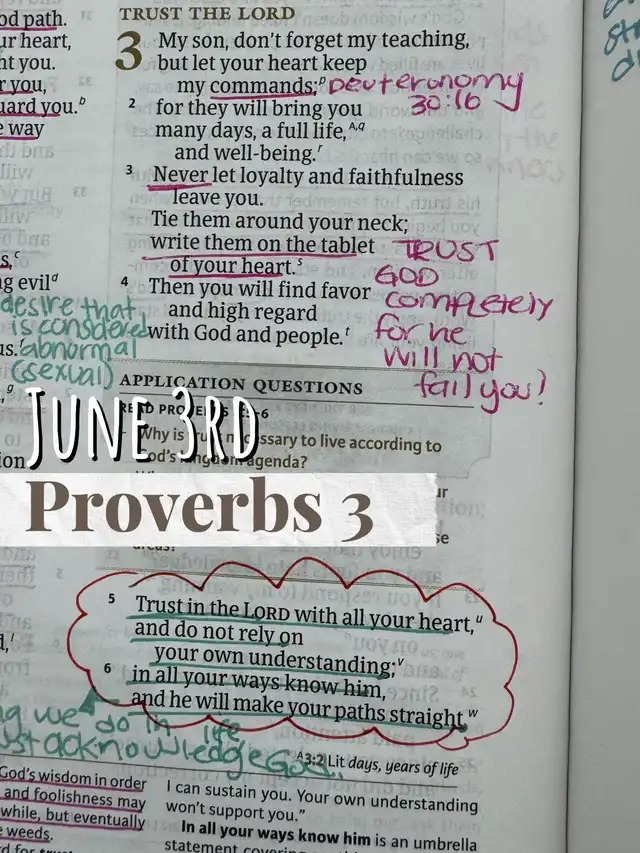 od path.
ur heart,
ht you.
r you,
uard you.ᵇ
e way
s,ᶜ
g evilᵈ
desire that
is considered
us.ᶠ abnormal
(sexual)
TRUST THE LORD
3 My son, don't forget my teaching,
but let your heart keep
my commands;ᵖ Deuteronomy
30:16
2 for they will bring you
many days, a full life,ᴬ,q
and well-being.ʳ
3 Never let loyalty and faithfulness
leave you.
Tie them around your neck;
write them on the tablet
of your heart.ˢ
4 Then you will find favor
and high regard
with God and people.ᵗ
TRUST
GOD
completely
for he
will not
fail you!
APPLICATION QUESTIONS
READ PROVERBS
Why is necessary to live according to
God's kingdom agenda?
JUNE 3RD
Proverbs 3
5 Trust in the LORD with all your heart,ᵘ
and do not rely on
your own understanding;ᵛ
6 in all your ways know him,
and he will make your paths straight.ʷ
ng we do in life
ust acknowledge God..
ᴬ3:2 Lit days, years of life
God's wisdom in order
and foolishness may
while, but eventually
e weeds.
I can sustain you. Your own understanding
won't support you."
In all your ways know him is an umbrella